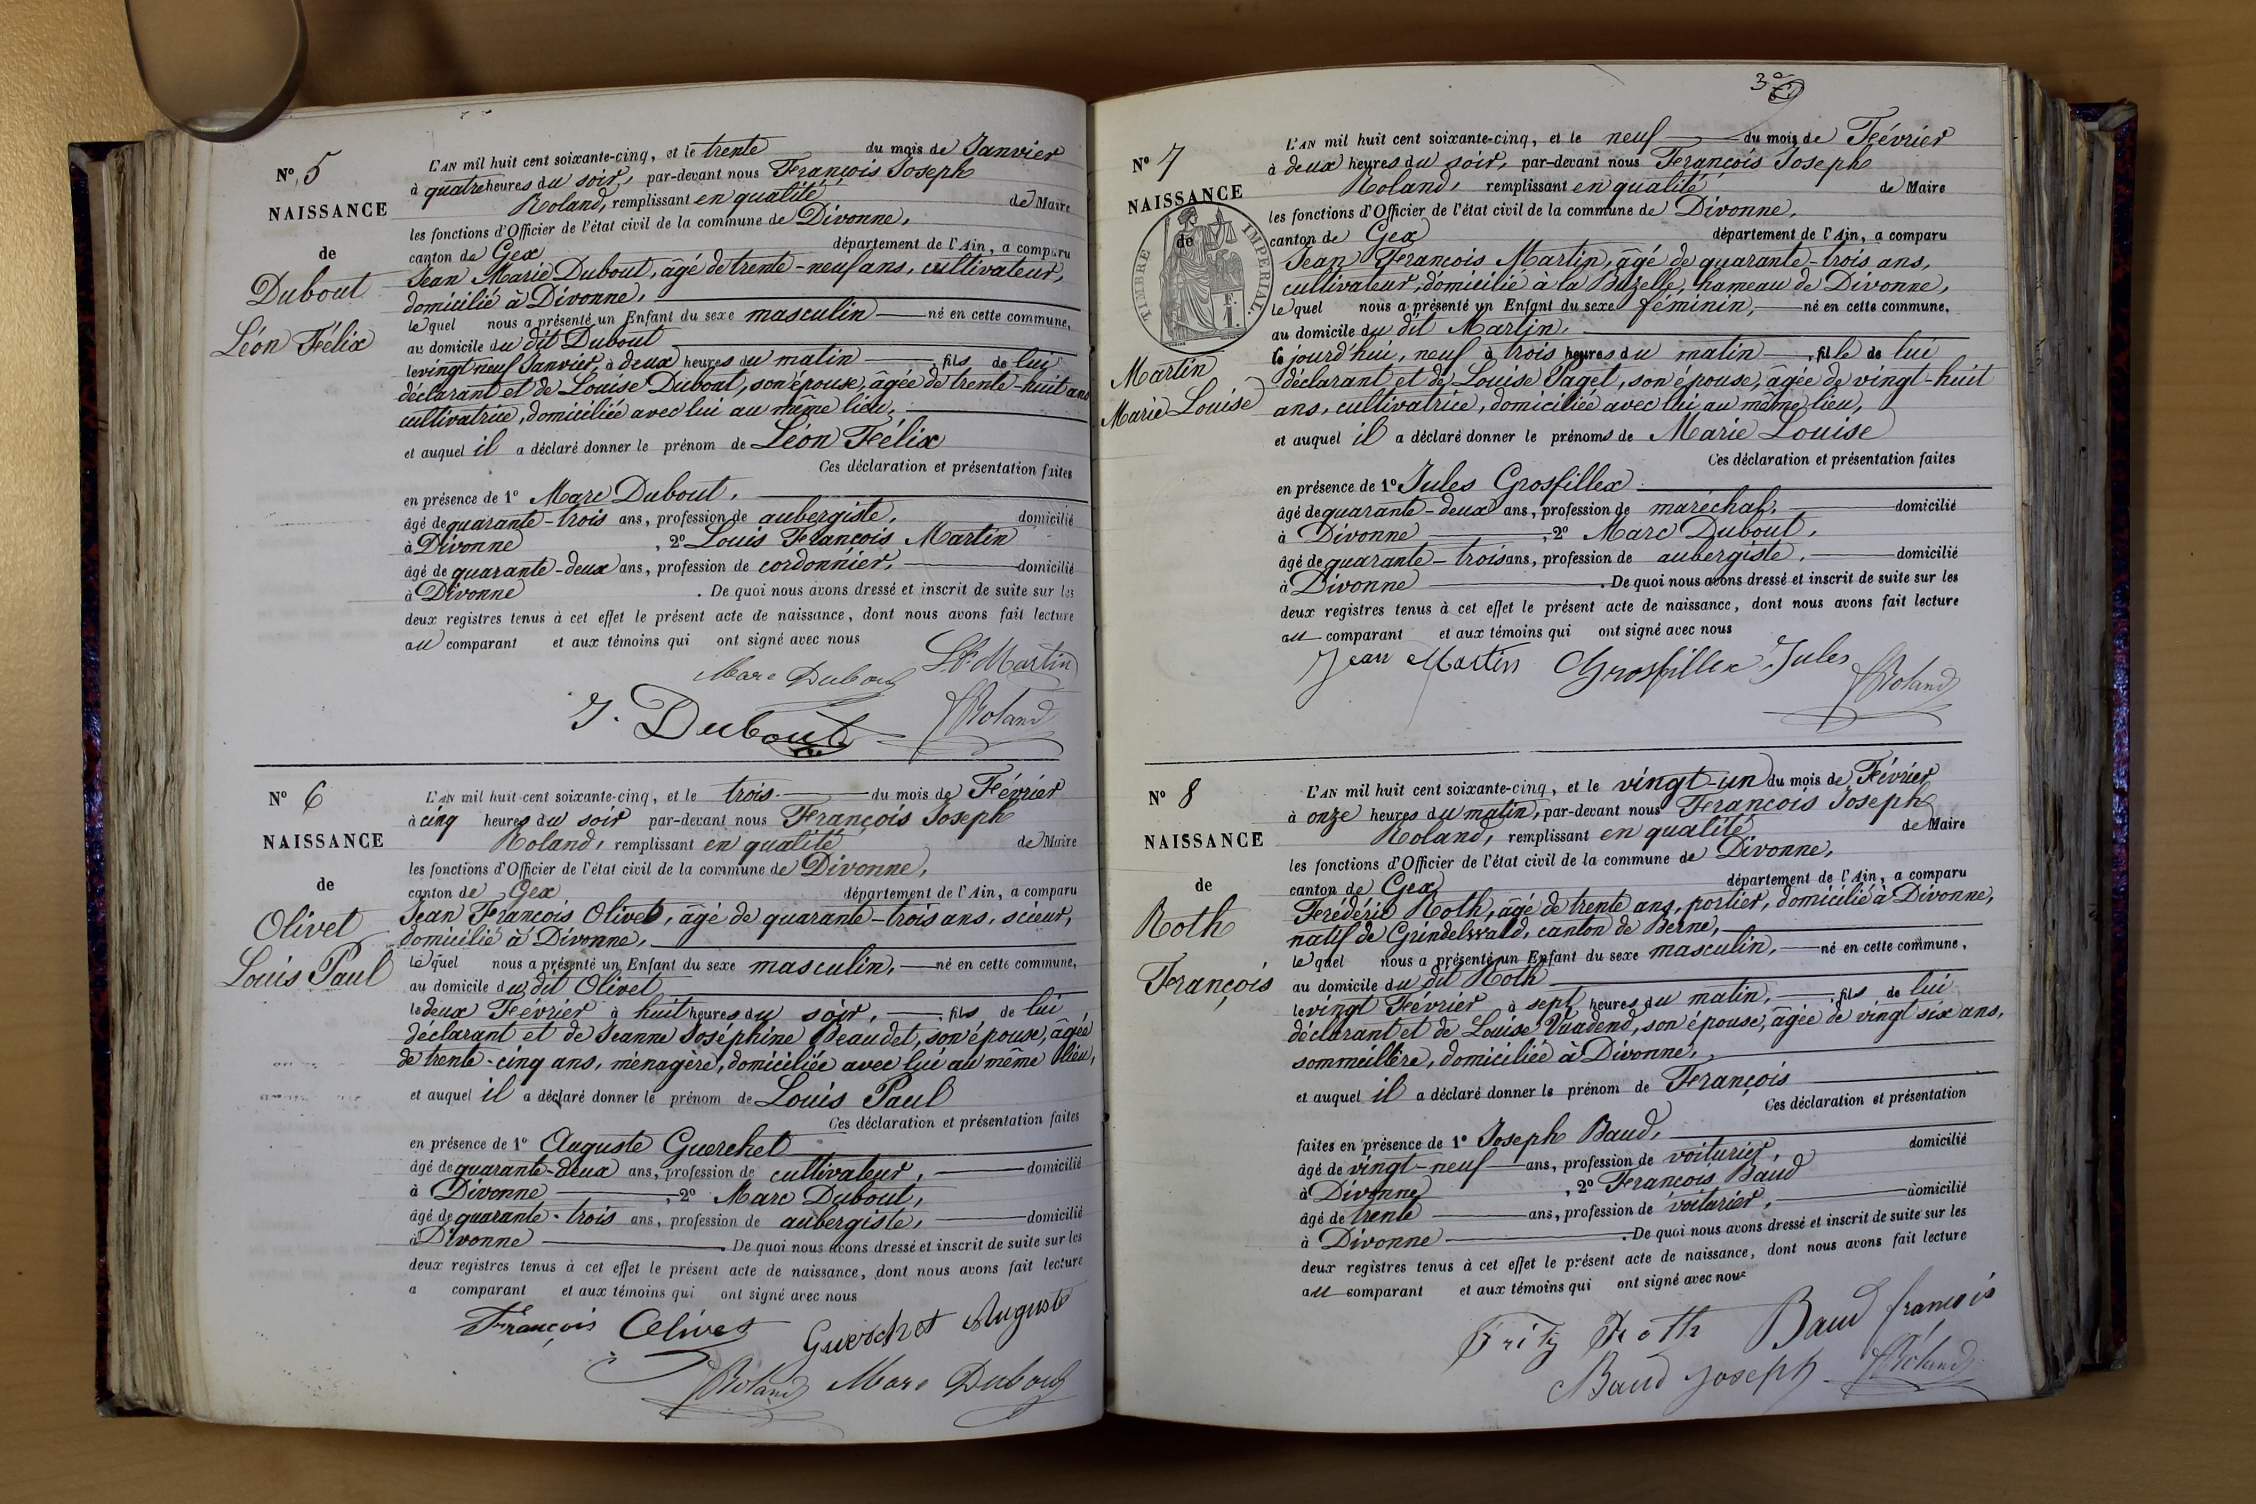 N° 5
NAISSANCE
de
Dubout
Léon Félix
L'AN mil huit cent soixante-cinq, et le trente du mois de Janvier
à quatre heures du soir, par-devant nous François Joseph
Roland, remplissant en qualité de Maire
les fonctions d'Officier de l'état civil de la commune de Divonne,
canton de Gex département de l'Ain, a comparu
Jean Marie Dubout, âgé de trente-neuf ans, cultivateur,
domicilié à Divonne,
lequel nous a présenté un Enfant du sexe masculin né en cette commune,
au domicile du dit Dubout
le vingt neuf Janvier à deux heures du matin, fils de lui
déclarant et de Louise Dubout, son épouse, âgée de trente-huit ans
cultivatrice, domiciliée avec lui au même lieu,
et auquel il a déclaré donner le prénom de Léon Félix
Ces déclaration et présentation faites
en présence de 1° Marc Dubout,
âgé de quarante-trois ans, profession de aubergiste, domicilié
à Divonne, 2° Louis François Martin
âgé de quarante-deux ans, profession de cordonnier, domicilié
à Divonne. De quoi nous avons dressé et inscrit de suite sur les
deux registres tenus à cet effet le présent acte de naissance, dont nous avons fait lecture
au comparant et aux témoins qui ont signé avec nous
Marc Dubout L. F. Martin
J. Dubout Roland
N° 6
NAISSANCE
de
Olivet
Louis Paul
L'AN mil huit cent soixante-cinq, et le trois du mois de Février
à cinq heures du soir par-devant nous François Joseph
Roland, remplissant en qualité de Maire
les fonctions d'Officier de l'état civil de la commune de Divonne,
canton de Gex département de l'Ain, a comparu
Jean François Olivet, âgé de quarante-trois ans, scieur,
domicilié à Divonne,
lequel nous a présenté un Enfant du sexe masculin, né en cette commune,
au domicile du dit Olivet
le deux Février à huit heures du soir, fils de lui
déclarant et de Jeanne Joséphine Beaudet, son épouse, âgée
de trente-cinq ans, ménagère, domiciliée avec lui au même lieu,
et auquel il a déclaré donner le prénom de Louis Paul
Ces déclaration et présentation faites
en présence de 1° Auguste Guerchet
âgé de quarante-deux ans, profession de cultivateur, domicilié
à Divonne, 2° Marc Dubout,
âgé de quarante-trois ans, profession de aubergiste, domicilié
à Divonne. De quoi nous avons dressé et inscrit de suite sur les
deux registres tenus à cet effet le présent acte de naissance, dont nous avons fait lecture
a comparant et aux témoins qui ont signé avec nous
François Olivet Guerchet Auguste
Roland Marc Dubout
3
N° 7
NAISSANCE
de
TIMBRE IMPERIAL
Martin
Marie Louise
L'AN mil huit cent soixante-cinq, et le neuf du mois de Février
à deux heures du soir, par-devant nous François Joseph
Roland, remplissant en qualité de Maire
les fonctions d'Officier de l'état civil de la commune de Divonne,
canton de Gex département de l'Ain, a comparu
Jean François Martin, âgé de quarante-trois ans,
cultivateur, domicilié à la hameau de Divonne,
lequel nous a présenté un Enfant du sexe féminin, né en cette commune,
au domicile du dit Martin,
ce jourd'hui, neuf à trois heures du matin, fille de lui
déclarant et de Louise Paget, son épouse, âgée de vingt-huit
ans, cultivatrice, domiciliée avec lui au même lieu,
et auquel il a déclaré donner le prénoms de Marie Louise
Ces déclaration et présentation faites
en présence de 1° Jules Grosfillex
âgé de quarante-deux ans, profession de maréchal, domicilié
à Divonne, 2° Marc Dubout,
âgé de quarante-trois ans, profession de aubergiste, domicilié
à Divonne. De quoi nous avons dressé et inscrit de suite sur les
deux registres tenus à cet effet le présent acte de naissance, dont nous avons fait lecture
au comparant et aux témoins qui ont signé avec nous
Jean Martin Grosfillex Jules Roland
N° 8
NAISSANCE
de
Roth
François
L'AN mil huit cent soixante-cinq, et le vingt-un du mois de Février
à onze heures du matin, par-devant nous François Joseph
Roland, remplissant en qualité de Maire
les fonctions d'Officier de l'état civil de la commune de Divonne,
canton de Gex département de l'Ain, a comparu
Frédéric Roth, âgé de trente ans, portier, domicilié à Divonne,
natif de Grindelwald, canton de Berne,
lequel nous a présenté un Enfant du sexe masculin, né en cette commune,
au domicile du dit Roth
le vingt Février à sept heures du matin, fils de lui
déclarant et de Louise son épouse, âgée de vingt six ans,
sommeillère, domiciliée à Divonne,
et auquel il a déclaré donner le prénom de François
Ces déclaration et présentation
faites en présence de 1° Joseph Baud, domicilié
âgé de vingt-neuf ans, profession de voiturier,
à Divonne, 2° François Baud
âgé de trente ans, profession de voiturier, domicilié
à Divonne. De quoi nous avons dressé et inscrit de suite sur les
deux registres tenus à cet effet le présent acte de naissance, dont nous avons fait lecture
au comparant et aux témoins qui ont signé avec nous
Fritz Roth Baud françois
Baud joseph Roland